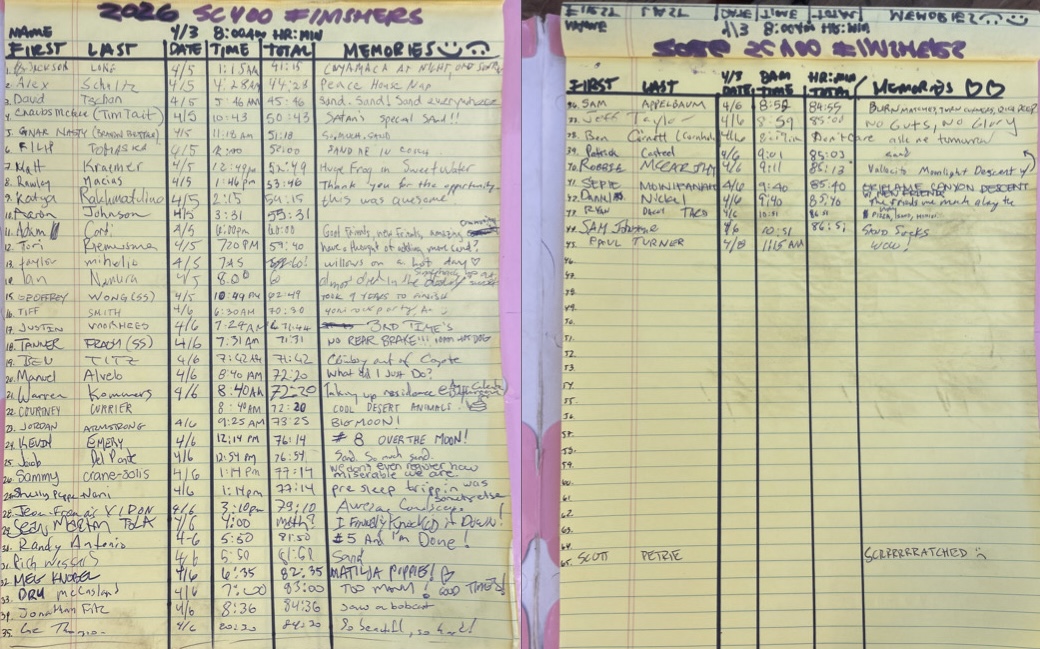 2026 SC400 FINISHERS
NAME 4/3 8:00AM HR:MIN
FIRST LAST DATE TIME TOTAL MEMORIES
1. JACKSON LONE 4/5 1:15AM 41:15 CUYAMACA AT NIGHT,
2. Alex Schultz 4/5 4:28AM 44:28 Pence House Nap
3. David Tschan 4/5 5:46AM 45:46 Sand. Sand! Sand everywhere
4. (Tim Tait) 4/5 10:43 50:43 Satan's special sand!!
5. GNAR NASTY 4/5 11:18AM 51:18
6. FILIP TOMASKA 4/5 SAND AR IN
7. Matt Kraemer 4/5 12:49pm 52:49 Huge Frog in Sweetwater
8. Rawley Macias 4/5 1:46pm 53:46 Thank you for the opportunity
9. Katya Rakhmatulina 4/5 2:15 54:15 this was awesome
10. Aaron Johnson 4/5 3:31 55:31
11. Adam Conti 4/5 6:00pm 60:00 Good Friends, new Friends, amazing
12. Tori 4/5 7:20 PM 59:40 have u thought of adding more sand?
13. Taylor mihelic 4/5 7:45 willows on a hot day ♡
14. Ian Nemura 4/5 8:00 60 almost died in the
15. GEOFFREY WONG (SS) 4/5 10:49 PM 62:49 TOOK 9 YEARS TO FINISH
16. TIFF SMITH 4/6 6:30AM 70:30
17. JUSTIN VOORHEES 4/6 7:29AM 71:44 3RD TIME'S
18. TANNER FRADY (SS) 4/6 7:31 AM 71:31 NO REAR BRAKE!!!
19. BEN TITZ 4/6 7:42AM 71:42 Climbing out of Coyote
20. Manuel Alvelo 4/6 8:40 AM 72:20 What did I Just Do?
21. Warren Kommers 4/6 8:40AM 72:20 Taking up residence @
22. COURTNEY CURRIER 8:40AM 72:20 COOL DESERT ANIMALS
23. JORDAN ARMSTRONG 4/6 9:25 AM 73:25 BIG MOON!
24. KEVIN EMERY 4/6 12:14 PM 76:14 #8 OVER THE MOON!
25. Jacob Del Ponte 4/6 12:54 PM 76:54 Sand. So much sand.
26. Sammy Crane-Solis 4/6 1:14pm 77:14 we don't even register how miserable we are
27. 4/6 1:14pm 77:14 pre sleep trippin was something else
28. Jean-Francois VIDON 4/6 3:10pm 79:10 Awesome
29. SEAN MARTIN TOLA 4/6 4:00 math? I Finally Knock(ed) it DOWN!
30. Randy Antonio 4-6 5:50 81:50 #5 And I'm Done!
31. Rich 4/6 5:50 Sand
32. MEG KNOBEL 4/6 6:35 82:35 MATILIJA POPPIES! ♡
33. DRU McCasland 4/6 7:00 83:00 TOO MANY! GOOD TIMES!
34. Jonathan Fitz 4/6 8:36 84:36 Saw a bobcat
35. 4/6 20:20 84:20 So beautiful, so hard!
FIRST LAST DATE TIME TOTAL MEMORIES
NAME 4/3 8:00AM HR:MIN
SC400 FINISHERS
4/3 8AM HR:MIN
FIRST LAST DATE TIME TOTAL MEMORIES ♡♡
36. SAM APPELBAUM 4/6 8:59 84:55 BURN MATCHES,
37. Jeff Taylor 4/6 8:59 85:00 NO GUTS, NO Glory
38. Ben Cornett 4/6 8:59pm Don't care ask me tomorrow
39. Patrick Casteel 4/6 9:01 85:03 sand
40. ROBBIE 4/6 9:11 85:13 Vallecito Moonlight Descent
41. STEPE 4/6 9:40 85:40 ORIFLAMME CANYON DESCENT
W/ NEW FRIENDS
42. Daniel Nickel 4/6 9:40 85:40 The friends we made along the way
43. 4/6 10:51 Pizza,
44. SAM Johnstone 4/6 10:51 86:51 Sand Sucks
45. PAUL TURNER 4/8 1:15 AM WOW!
46.
47.
48.
49.
50.
51.
52.
53.
54.
55.
56.
57.
58.
59.
60.
61.
62.
63.
64.
65. SCOTT PETRIE SCRRRRRATCHED